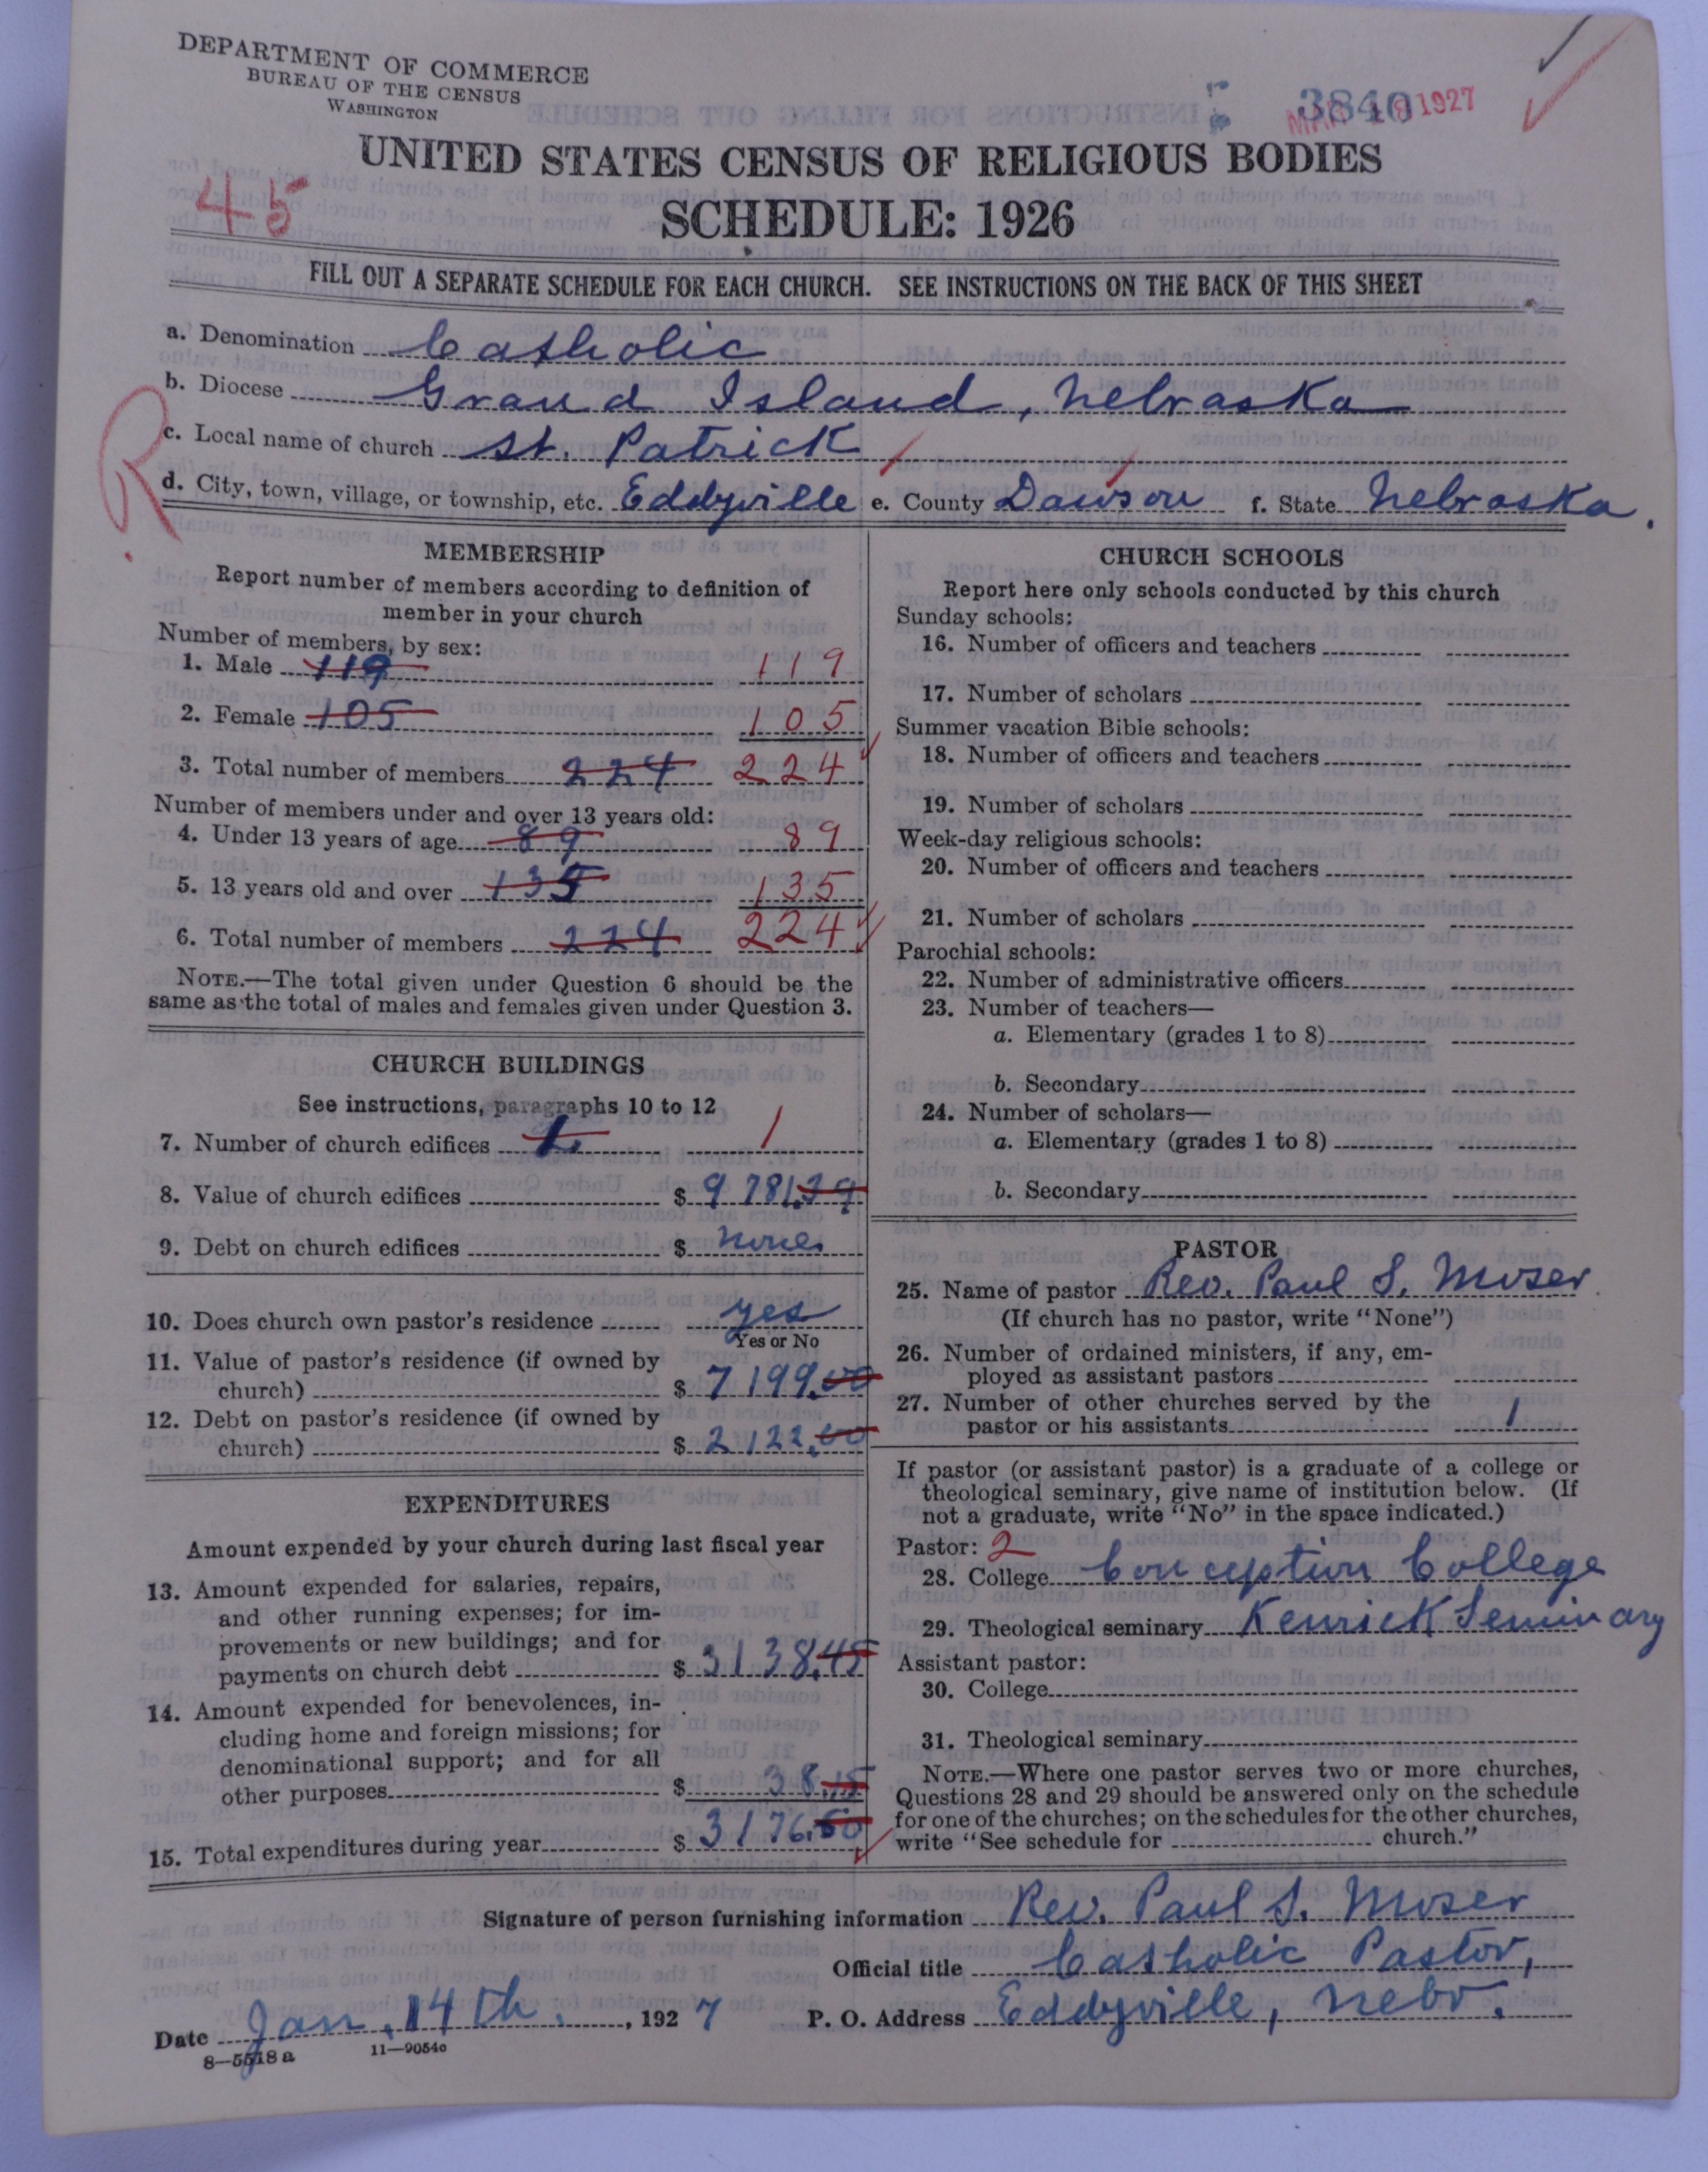 DEPARTMENT OF COMMERCE
BUREAU OF THE CENSUS
WASHINGTON
3840
MAR 18 1927
UNITED STATES CENSUS OF RELIGIOUS BODIES
45
SCHEDULE: 1926
FILL OUT A SEPARATE SCHEDULE FOR EACH CHURCH. SEE INSTRUCTIONS ON THE BACK OF THIS SHEET
a. Denomination Catholic
b. Diocese Grand Island, Nebraska
R
c. Local name of church St. Patrick
d. City, town, village, or township, etc. Eddyville e. County Dawson f. State Nebraska.
MEMBERSHIP
Report number of members according to definition of
member in your church
Number of members, by sex:
1. Male 119 119
2. Female 105 105
3. Total number of members 224 224
Number of members under and over 13 years old:
4. Under 13 years of age 89 89
5. 13 years old and over 135 135
6. Total number of members 224 224
NOTE.—The total given under Question 6 should be the
same as the total of males and females given under Question 3.
CHURCH BUILDINGS
See instructions, paragraphs 10 to 12
7. Number of church edifices 1 1
8. Value of church edifices $ 9781.39
9. Debt on church edifices $ none
10. Does church own pastor's residence yes
Yes or No
11. Value of pastor's residence (if owned by
church) $ 7199.00
12. Debt on pastor's residence (if owned by
church) $ 2122.00
EXPENDITURES
Amount expended by your church during last fiscal year
13. Amount expended for salaries, repairs,
and other running expenses; for im-
provements or new buildings; and for
payments on church debt $ 3138.45
14. Amount expended for benevolences, in-
cluding home and foreign missions; for
denominational support; and for all
other purposes $ 38.15
15. Total expenditures during year $ 3176.60
CHURCH SCHOOLS
Report here only schools conducted by this church
Sunday schools:
16. Number of officers and teachers
17. Number of scholars
Summer vacation Bible schools:
18. Number of officers and teachers
19. Number of scholars
Week-day religious schools:
20. Number of officers and teachers
21. Number of scholars
Parochial schools:
22. Number of administrative officers
23. Number of teachers—
a. Elementary (grades 1 to 8)
b. Secondary
24. Number of scholars—
a. Elementary (grades 1 to 8)
b. Secondary
PASTOR
25. Name of pastor Rev. Paul S. Moser
(If church has no pastor, write "None")
26. Number of ordained ministers, if any, em-
ployed as assistant pastors
27. Number of other churches served by the
pastor or his assistants 1
If pastor (or assistant pastor) is a graduate of a college or
theological seminary, give name of institution below. (If
not a graduate, write "No" in the space indicated.)
Pastor: 2
28. College Conception College
29. Theological seminary Kenrick Seminary
Assistant pastor:
30. College
31. Theological seminary
NOTE.—Where one pastor serves two or more churches,
Questions 28 and 29 should be answered only on the schedule
for one of the churches; on the schedules for the other churches,
write "See schedule for church."
Signature of person furnishing information Rev. Paul S. Moser
Official title Catholic Pastor,
Date Jan. 14th. , 1927 P. O. Address Eddyville, Nebr.
8—5518 a 11—9054c